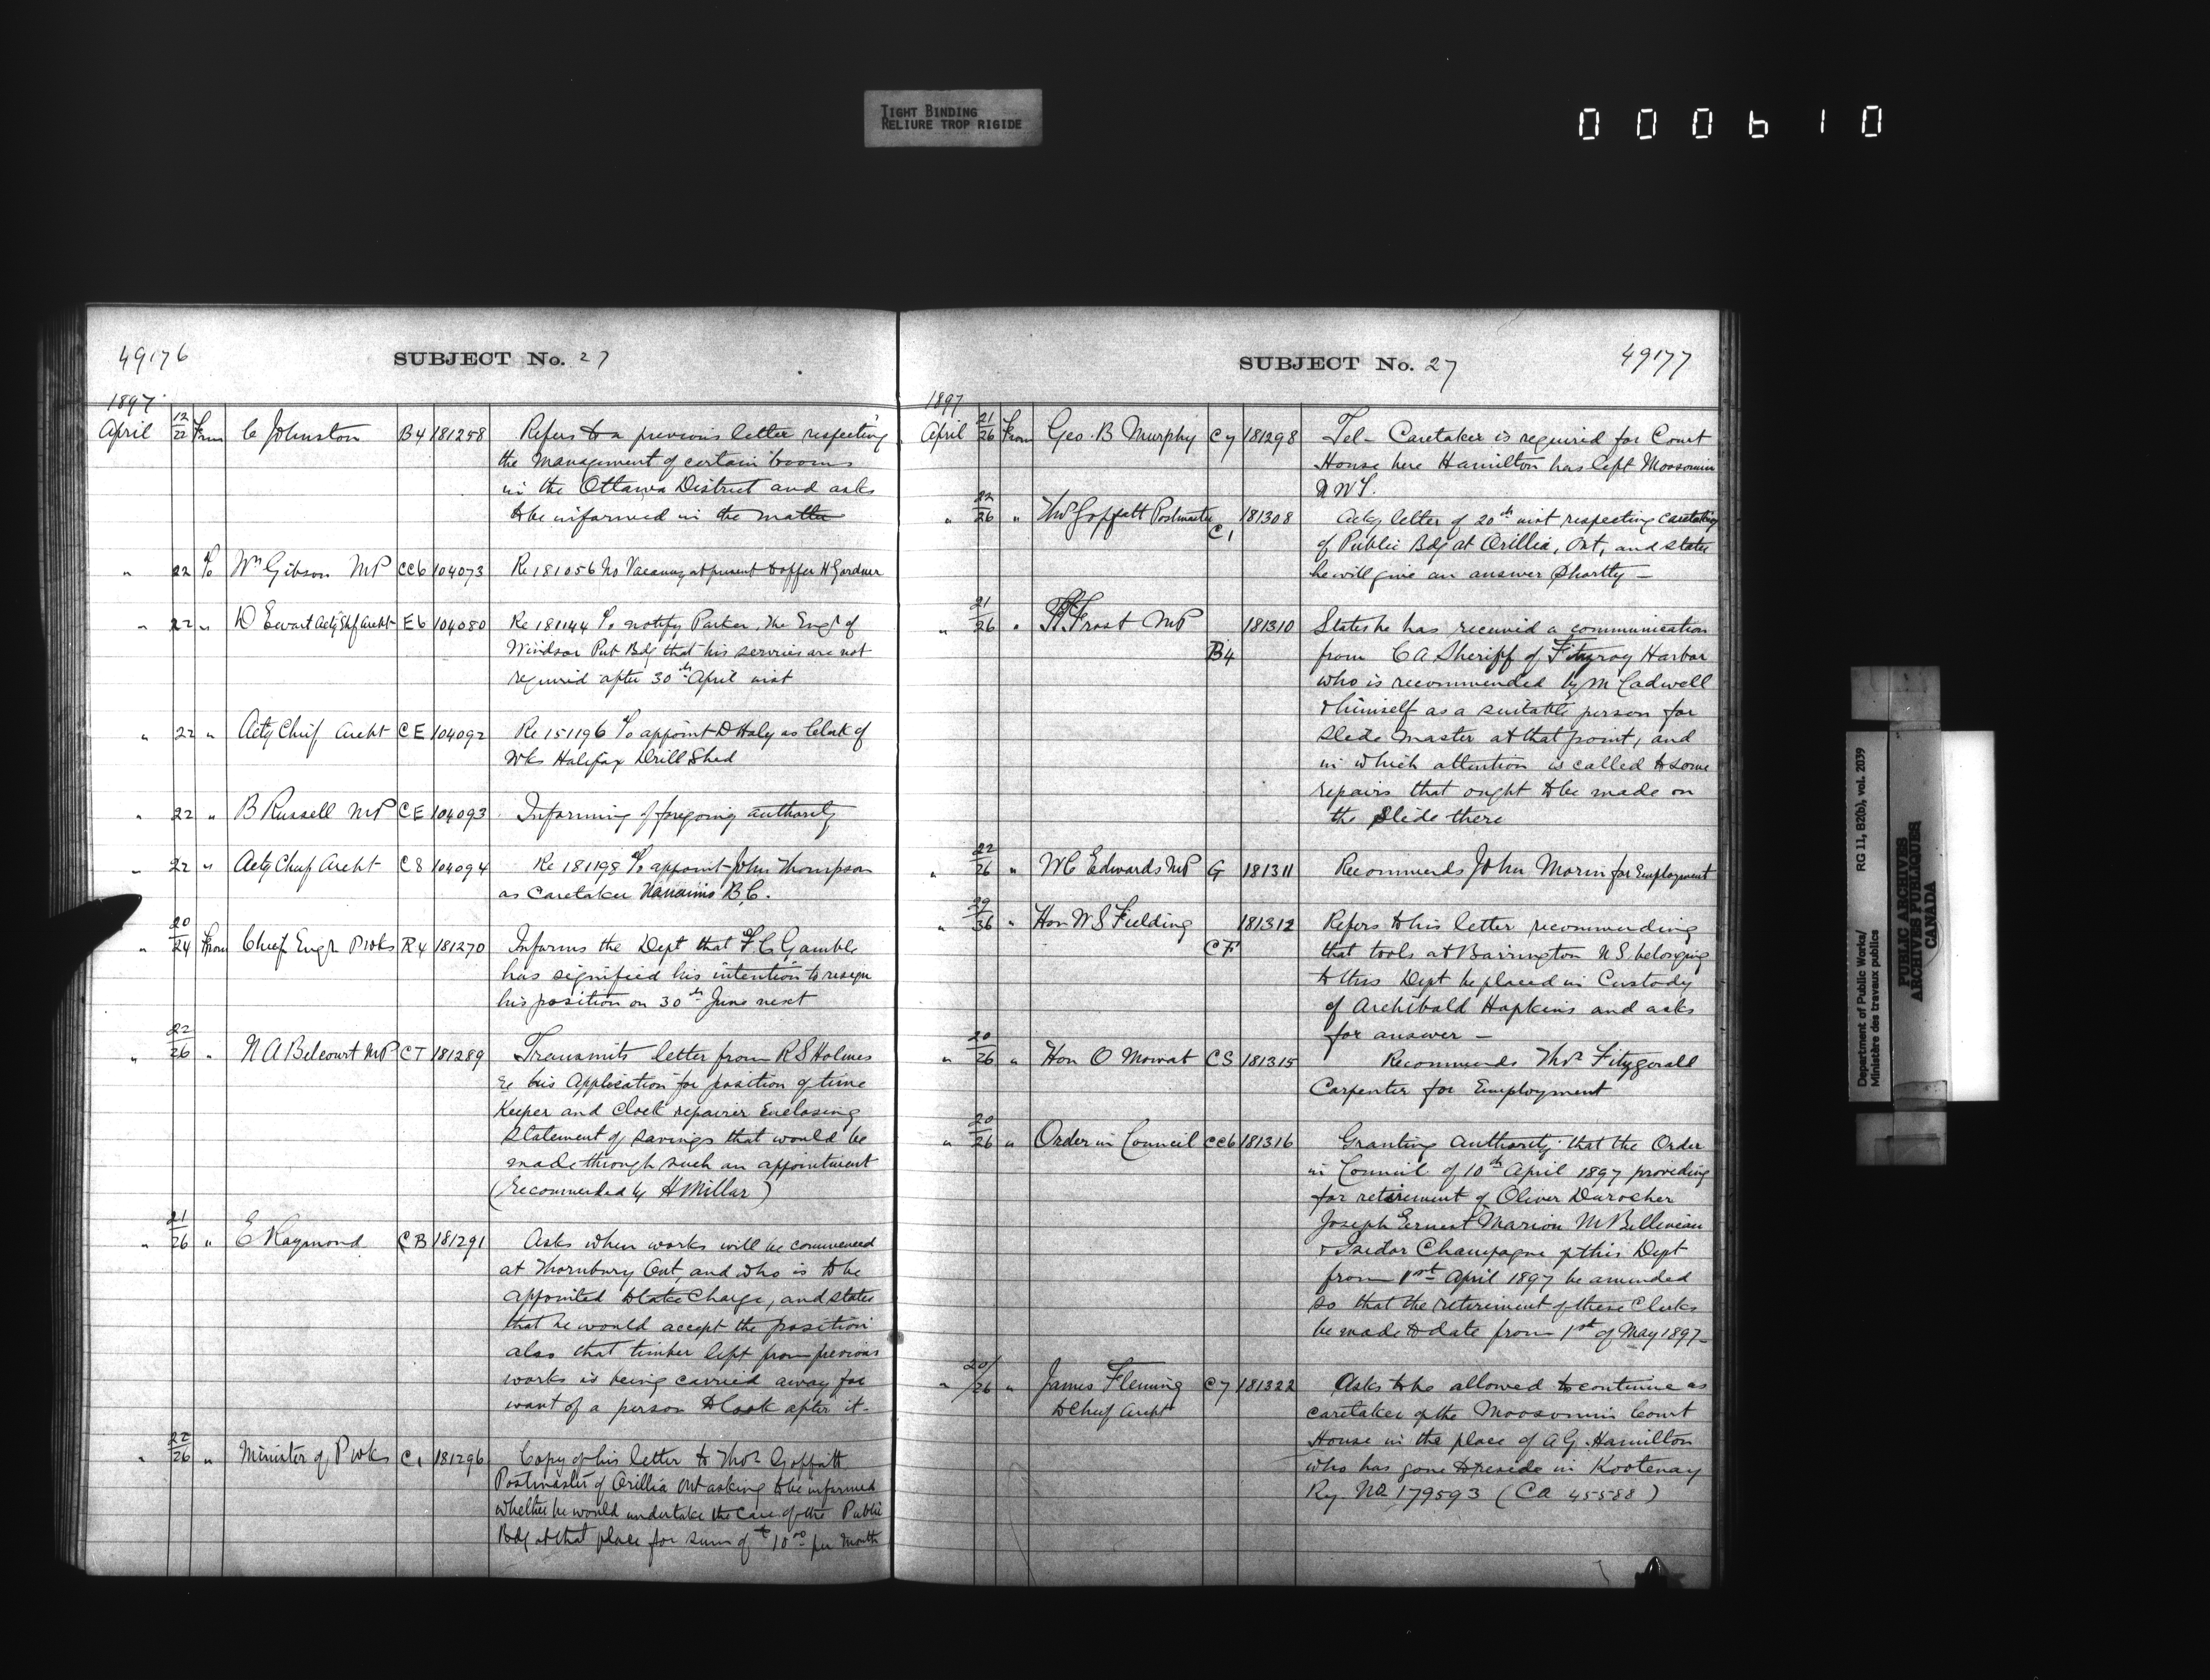 TIGHT BINDING
RELIURE TROP RIGIDE
000610
49176
SUBJECT No. 27
1897
April 12/22 From C Johnston B4 181258 Refers to a previous letter respecting
the management of certain booms
in the Ottawa District and asks
to be informed in the matter
" 22 To Wm Gibson MP CC6 104073 Re 181056 No Vacancy at present to offer H Gardner
" 22 " D Ewart Actg Chf Archt E6 104080 Re 181144 To notify Parker, the Engr of
Windsor Pub Bdg that his services are not
required after 30th April inst
" 22 " Actg Chief Archt CE 104092 Re 151196 To appoint D Haly as Clerk of
Wks Halifax Drill Shed
" 22 " B Russell MP CE 104093 Informing of foregoing authority
" 22 " Actg Chief Archt C8 104094 Re 181198 To appoint John Thompson
as Caretaker Nanaimo B.C.
" 20/24 From Chief Engr P Wks R4 181270 Informs the Dept that F C Gamble
has signified his intention to resign
his position on 30th June next
" 22/26 " N A Belcourt MP CT 181289 Transmits letter from R S Holmes
re his Application for position of time
Keeper and Clock repairer Enclosing
Statement of savings that would be
made through such an appointment
(recommended by H Millar)
" 21/26 " E Raymond CB 181291 Asks when works will be commenced
at Thornbury Ont, and who is to be
appointed to take Charge, and states
that he would accept the position
also that timber left from previous
works is being carried away for
want of a person to look after it-
" 22/26 " Minister of P Wks C1 181296 Copy of his letter to Thos Goffatt
Postmaster of Orillia Ont asking to be informed
whether he would undertake the Care of the Public
Bdg at that place for sum of $10.00 per Month
SUBJECT No. 27
49177
1897
April 21/26 From Geo. B Murphy C7 181298 Tel- Caretaker is required for Court
House here Hamilton has left Moosomin
N W T.
" 22/26 " Thos Goffatt Postmaster C1 181308 Ackg letter of 20th inst respecting caretaking
of Public Bdg at Orillia, Ont, and states
he will give an answer Shortly —
" 21/26 " Frost MP 181310 States he has received a communication
B4 from C A Sheriff of Fitzroy Harbor
who is recommended by M Cadwell
& himself as a suitable person for
Slide Master at that point, and
in which attention is called to some
repairs that ought to be made on
the Slide there
" 22/26 " W C Edwards MP G 181311 Recommends John Morin for Employment
" Hon W S Fielding 181312 Refers to his letter recommending
CF that tools at Barrington N S belonging
to this Dept be placed in Custody
of Archibald Hopkins and asks
for answer —
" 20/26 " Hon O Mowat CS 181315 Recommends Thos Fitzgerall
Carpenter for Employment
" 20/26 " Order in Council CC6 181316 Granting authority that the Order
in Council of 10th April 1897 providing
for retirement of Oliver Durocher
Joseph Ernest Marion M Belliveau
& Isidor Champagne of this Dept
from 1st April 1897 be amended
so that the retirement of these Clerks
be made to date from 1st of May 1897-
" 20/26 " James Fleming C7 181322 Asks to be allowed to continue as
to Chief Archt caretaker of the Moosomin Court
House in the place of A G Hamilton
who has gone to reside in Kootenay
Ry. No 179593 (CA 45588)
Department of Public Works/
Ministère des travaux publics
RG 11, B2(b), vol. 2039
PUBLIC ARCHIVES
ARCHIVES PUBLIQUES
CANADA